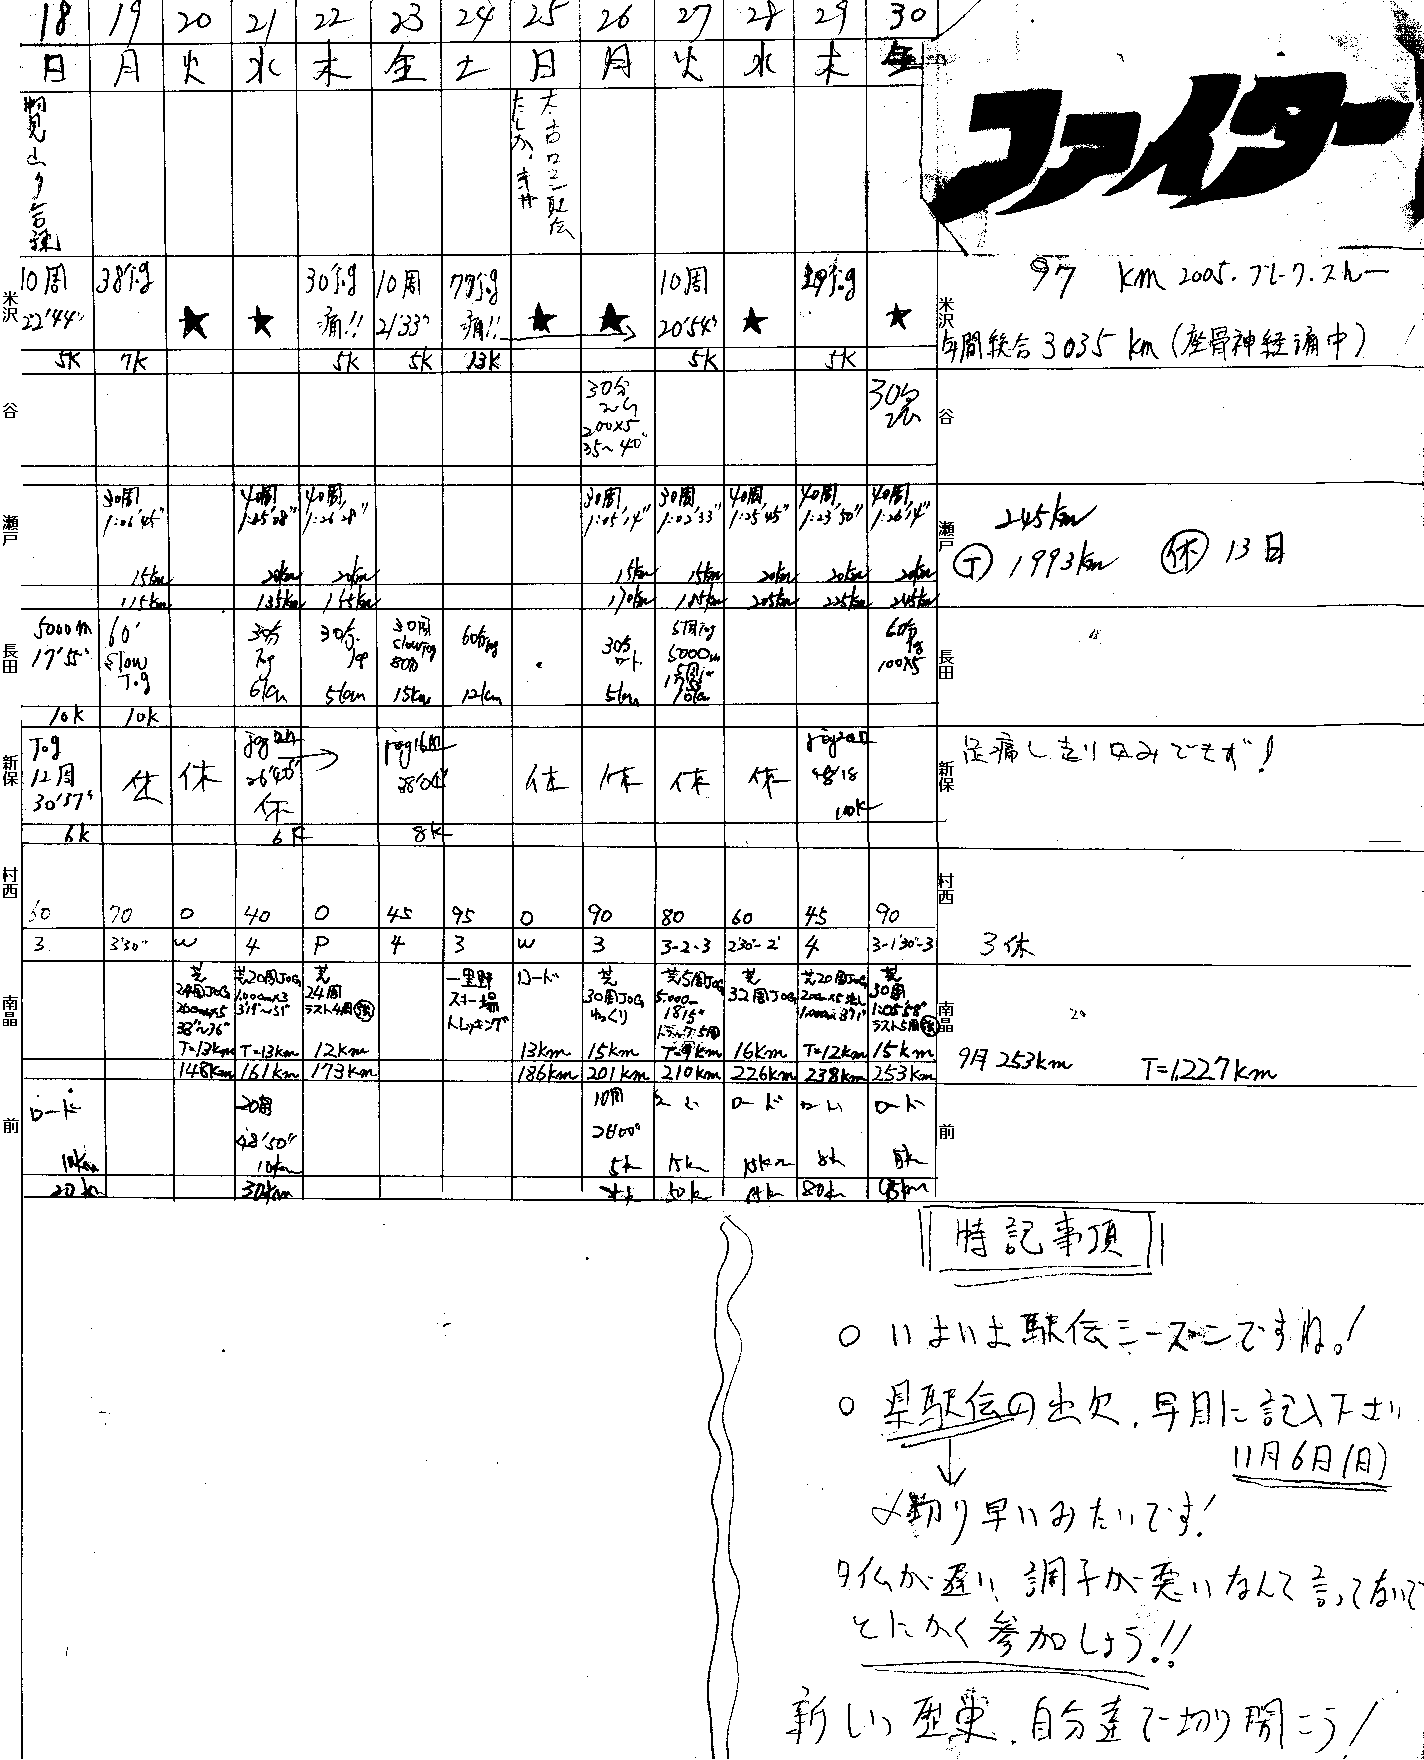 18 19 20 21 22 23 24 25 26 27 28 29 30
日 月 火 水 木 金 土 日 月 火 水 木 金
ファイター
大古ロマン駅伝
米沢
10周 38jog 30jog 10周 77jog 10周
22'44" ★ ★ 痛!! 21'33" 痛!! ★ ★ 20'54" ★ ★
5K 7K 5K 5K 13K 5K 5K
米沢
97 km 2005.
年間総合 3035 km (座骨神経痛中)
谷
30分
200×5
35~40"
30分
谷
瀬戸
30周 40周 40周 30周 30周 40周 40周 40周
1:06'45" 1:25'28" 1:26'28" 1:05'14" 1:02'33" 1:25'45" 1:23'50" 1:26'14"
15km 20km 20km 15km 15km 20km 20km 20km
115km 135km 155km 170km 185km 205km 225km 245km
瀬戸
245km
Ⓣ 1993km ㊡ 13日
長田
5000m 60' 30分 30分 30周 60分jog 30分 5周jog 60分
17'55" slow Jog Jog slow jog ロード 5000m jog
Jog 6km 5km 15km 12km 5km 10km 100×5
10k 10k
長田
新保
Jog
12周 休 休 26'40" 38'04" 休 休 休 休 48'18
30'37" 休 10k
6k 6k 8k
新保
足痛し走り込みできず!
村西
60 70 0 40 0 45 95 0 90 80 60 45 90
3 3'30" W 4 P 4 3 W 3 3-2-3 2'30"-2' 4 3-1'30"-3
村西
3休
南晶
芝 芝20周JOG 芝 一里野 ロード 芝 芝5周JOG 芝 芝20周JOG 芝
24周JOG 1,000m×3 24周 スキー場 30周JOG 5,000m 32周JOG 30周
200m×5 ラスト4周 トレッキング ゆっくり 18'15" 1:05'58"
38"~36" トラック5周 ラスト5周
T=13km T=13km 12km 13km 15km T=9km 16km T=12km 15km
148km 161km 173km 186km 201km 210km 226km 238km 253km
南晶
9月 253km T=1,227km
前
ロード 20周 10周 ロード ロード
48'50"
10km 10km 5k 15k 15km 8k
20km 30km 50k 80k 95km
前
特記事項
○ いよいよ駅伝シーズンですね。!
○ 県駅伝の出欠、早目に記入下さい
11月6日(日)
↓
〆切り早いみたいです!
タイムが遅い、調子が悪いなんて言ってないで
とにかく参加しよう!!
新しい歴史、自分達で切り開こう!